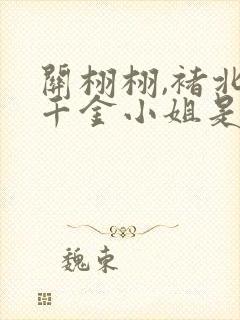 關栩栩,褚北
千金小姐是
魏東